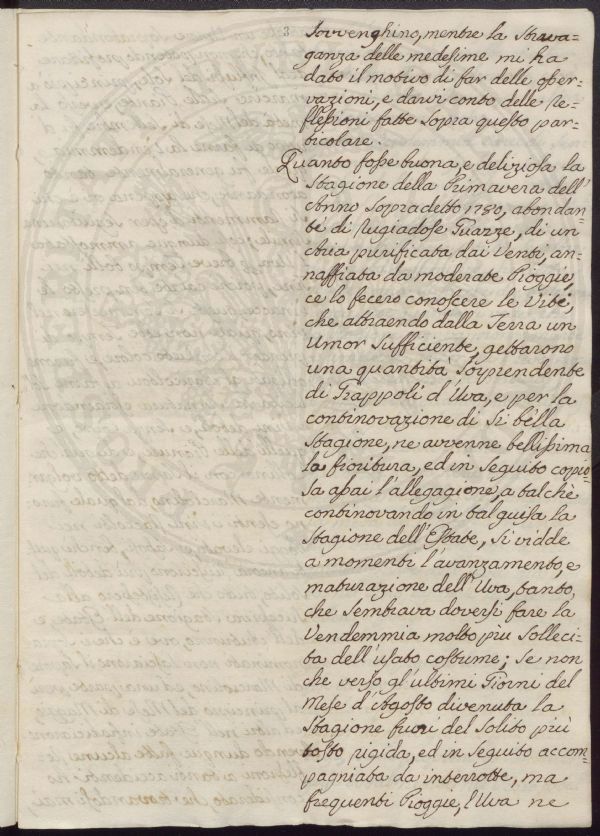 3
Sovvenghino, mentre la Strava=
ganza delle medesime mi ha
dato il motivo di far delle osser=
vazioni, e darvi conto delle re=
flessioni fatte sopra questo par=
ticolare.
Quanto fosse buona, e deliziosa la
Stagione della Primavera dell'
Anno Sopradetto 1780, abondan=
te di rugiadose Guazze, di un'
Aria purificata dai Venti, an=
naffiata da moderate Pioggie,
ce lo fecero conoscere le Viti,
che attraendo dalla Terra un
Umor Sufficiente, gettarono
una quantità Sorprendente
di Grappoli d'Uva, e per la
continovazione di Si bella
Stagione, ne avvenne bellissima
la fioritura, ed in Seguito copio=
sa assai l'allegagione, a talchè
continovando in tal guisa la
Stagione dell'Estate, Si vidde
a momenti l'avanzamento, e
maturazione dell'Uva, tanto,
che Sembrava doversi fare la
Vendemmia molto più Solleci=
ta dell'usato costume; Se non
che verso gl'ultimi Giorni del
Mese d'Agosto divenuta la
Stagione fuori del Solito più
tosto rigida, ed in Seguito accom=
pagniata da interrotte, ma
frequenti Pioggie, l'Uva ne